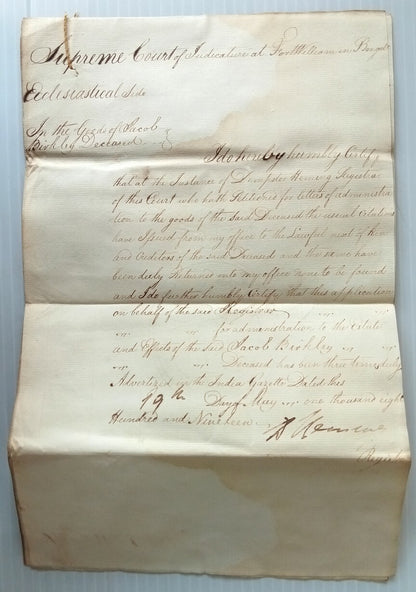 Supreme Court of Judicature at Fort William in Bengal
Ecclesiastical Side
In the Goods of Jacob
Birkley Deceased
I do hereby humbly Certify
that at the Instance of Dempster Heming Register
of this Court who hath Petitioned for letters of administra
tion to the goods of the said Deceased the usual Citations
have Issued from my office to the Lawful next of kin
and Creditors of the said Deceased and the same have
been duly Returned into my office none to be found
and I do further humbly Certify that this application
on behalf of the said Register
for administration to the Estate
and Effects of the said Jacob Birkley
Deceased has been three times duly
Advertized in the India Gazette Dated this
19th Day of May one thousand eight
Hundred and Nineteen
Regist